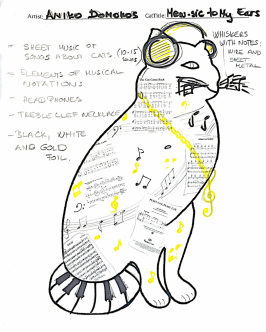 Artist: ANIKO DOMOKOS Cat Title: Mew-sic to My Ears
- SHEET MUSIC OF SONGS ABOUT CATS (10-15 SONGS)
- ELEMENTS OF MUSICAL NOTATIONS
- HEADPHONES
- TREBLE CLEF NECKLACE
- BLACK, WHITE AND GOLD FOIL.
WHISKERS
WITH NOTES:
WIRE AND
SHEET
METAL